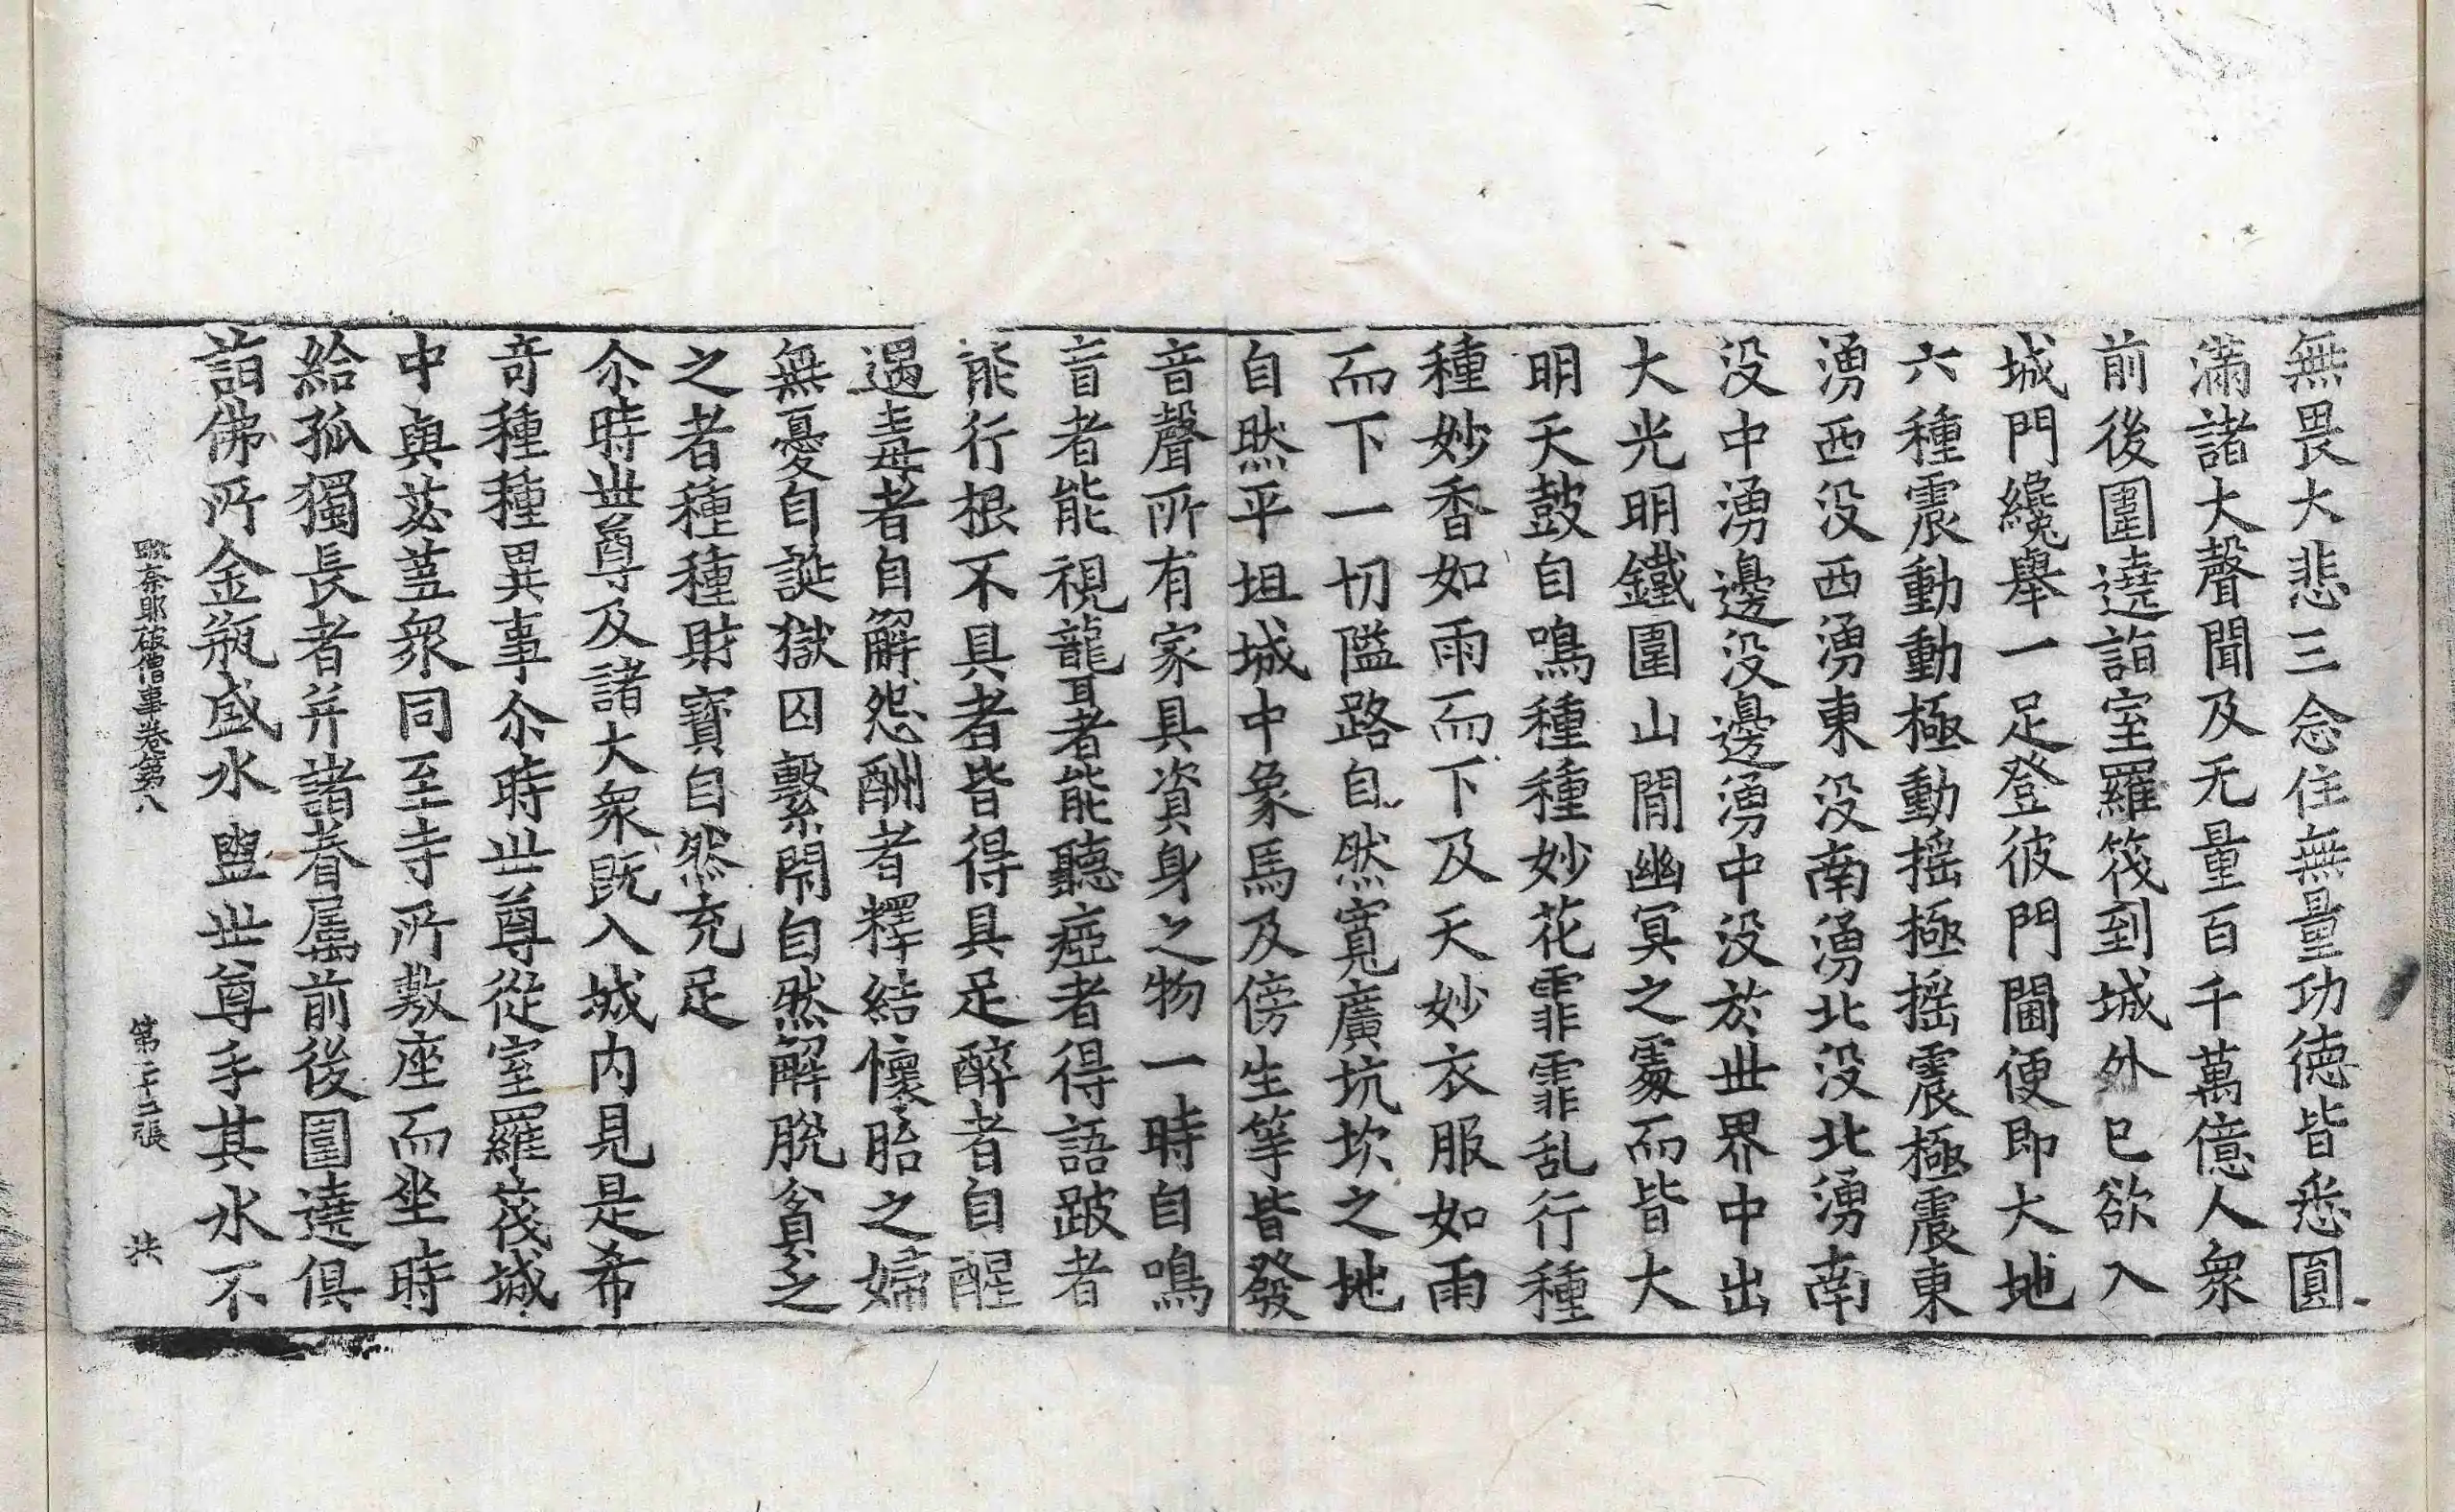 無畏大悲三念住無量功德皆悉圓
滿諸大聲聞及无量百千萬億人衆
前後圍遶詣室羅筏到城外已欲入
城門纔舉一足登彼門閫便即大地
六種震動動極動摇極摇震極震東
湧西没西湧東没南湧北没北湧南
没中湧邊没邊湧中没於世界中出
大光明鐵圍山間幽冥之處而皆大
明天鼓自鳴種種妙花霏霏乱行種
種妙香如雨而下及天妙衣服如雨
而下一切隘路自然寬廣坑坎之地
自然平坦城中象馬及傍生等皆發
音聲所有家具資身之物一時自鳴
盲者能視聾者能聽瘂者得語跛者
能行根不具者皆得具足醉者自醒
遇毒者自解怨酬者釋結懷胎之婦
無憂自誕獄囚繫閇自然解脫貧之
之者種種財寶自然充足
尒時世尊及諸大衆既入城内見是希
奇種種異事尒時世尊從室羅筏城
中與苾蒭衆同至寺所敷座而坐時
給孤獨長者并諸眷屬前後圍遶俱
詣佛所金瓶盛水盥世尊手其水不
毗奈耶破僧事卷第八 第二十二張